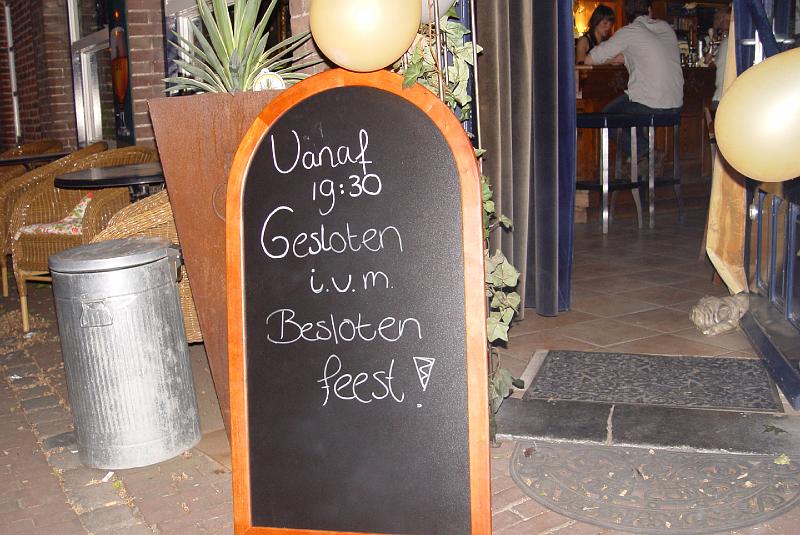 Vanaf
19:30
Gesloten
i.v.m.
Besloten
feest!